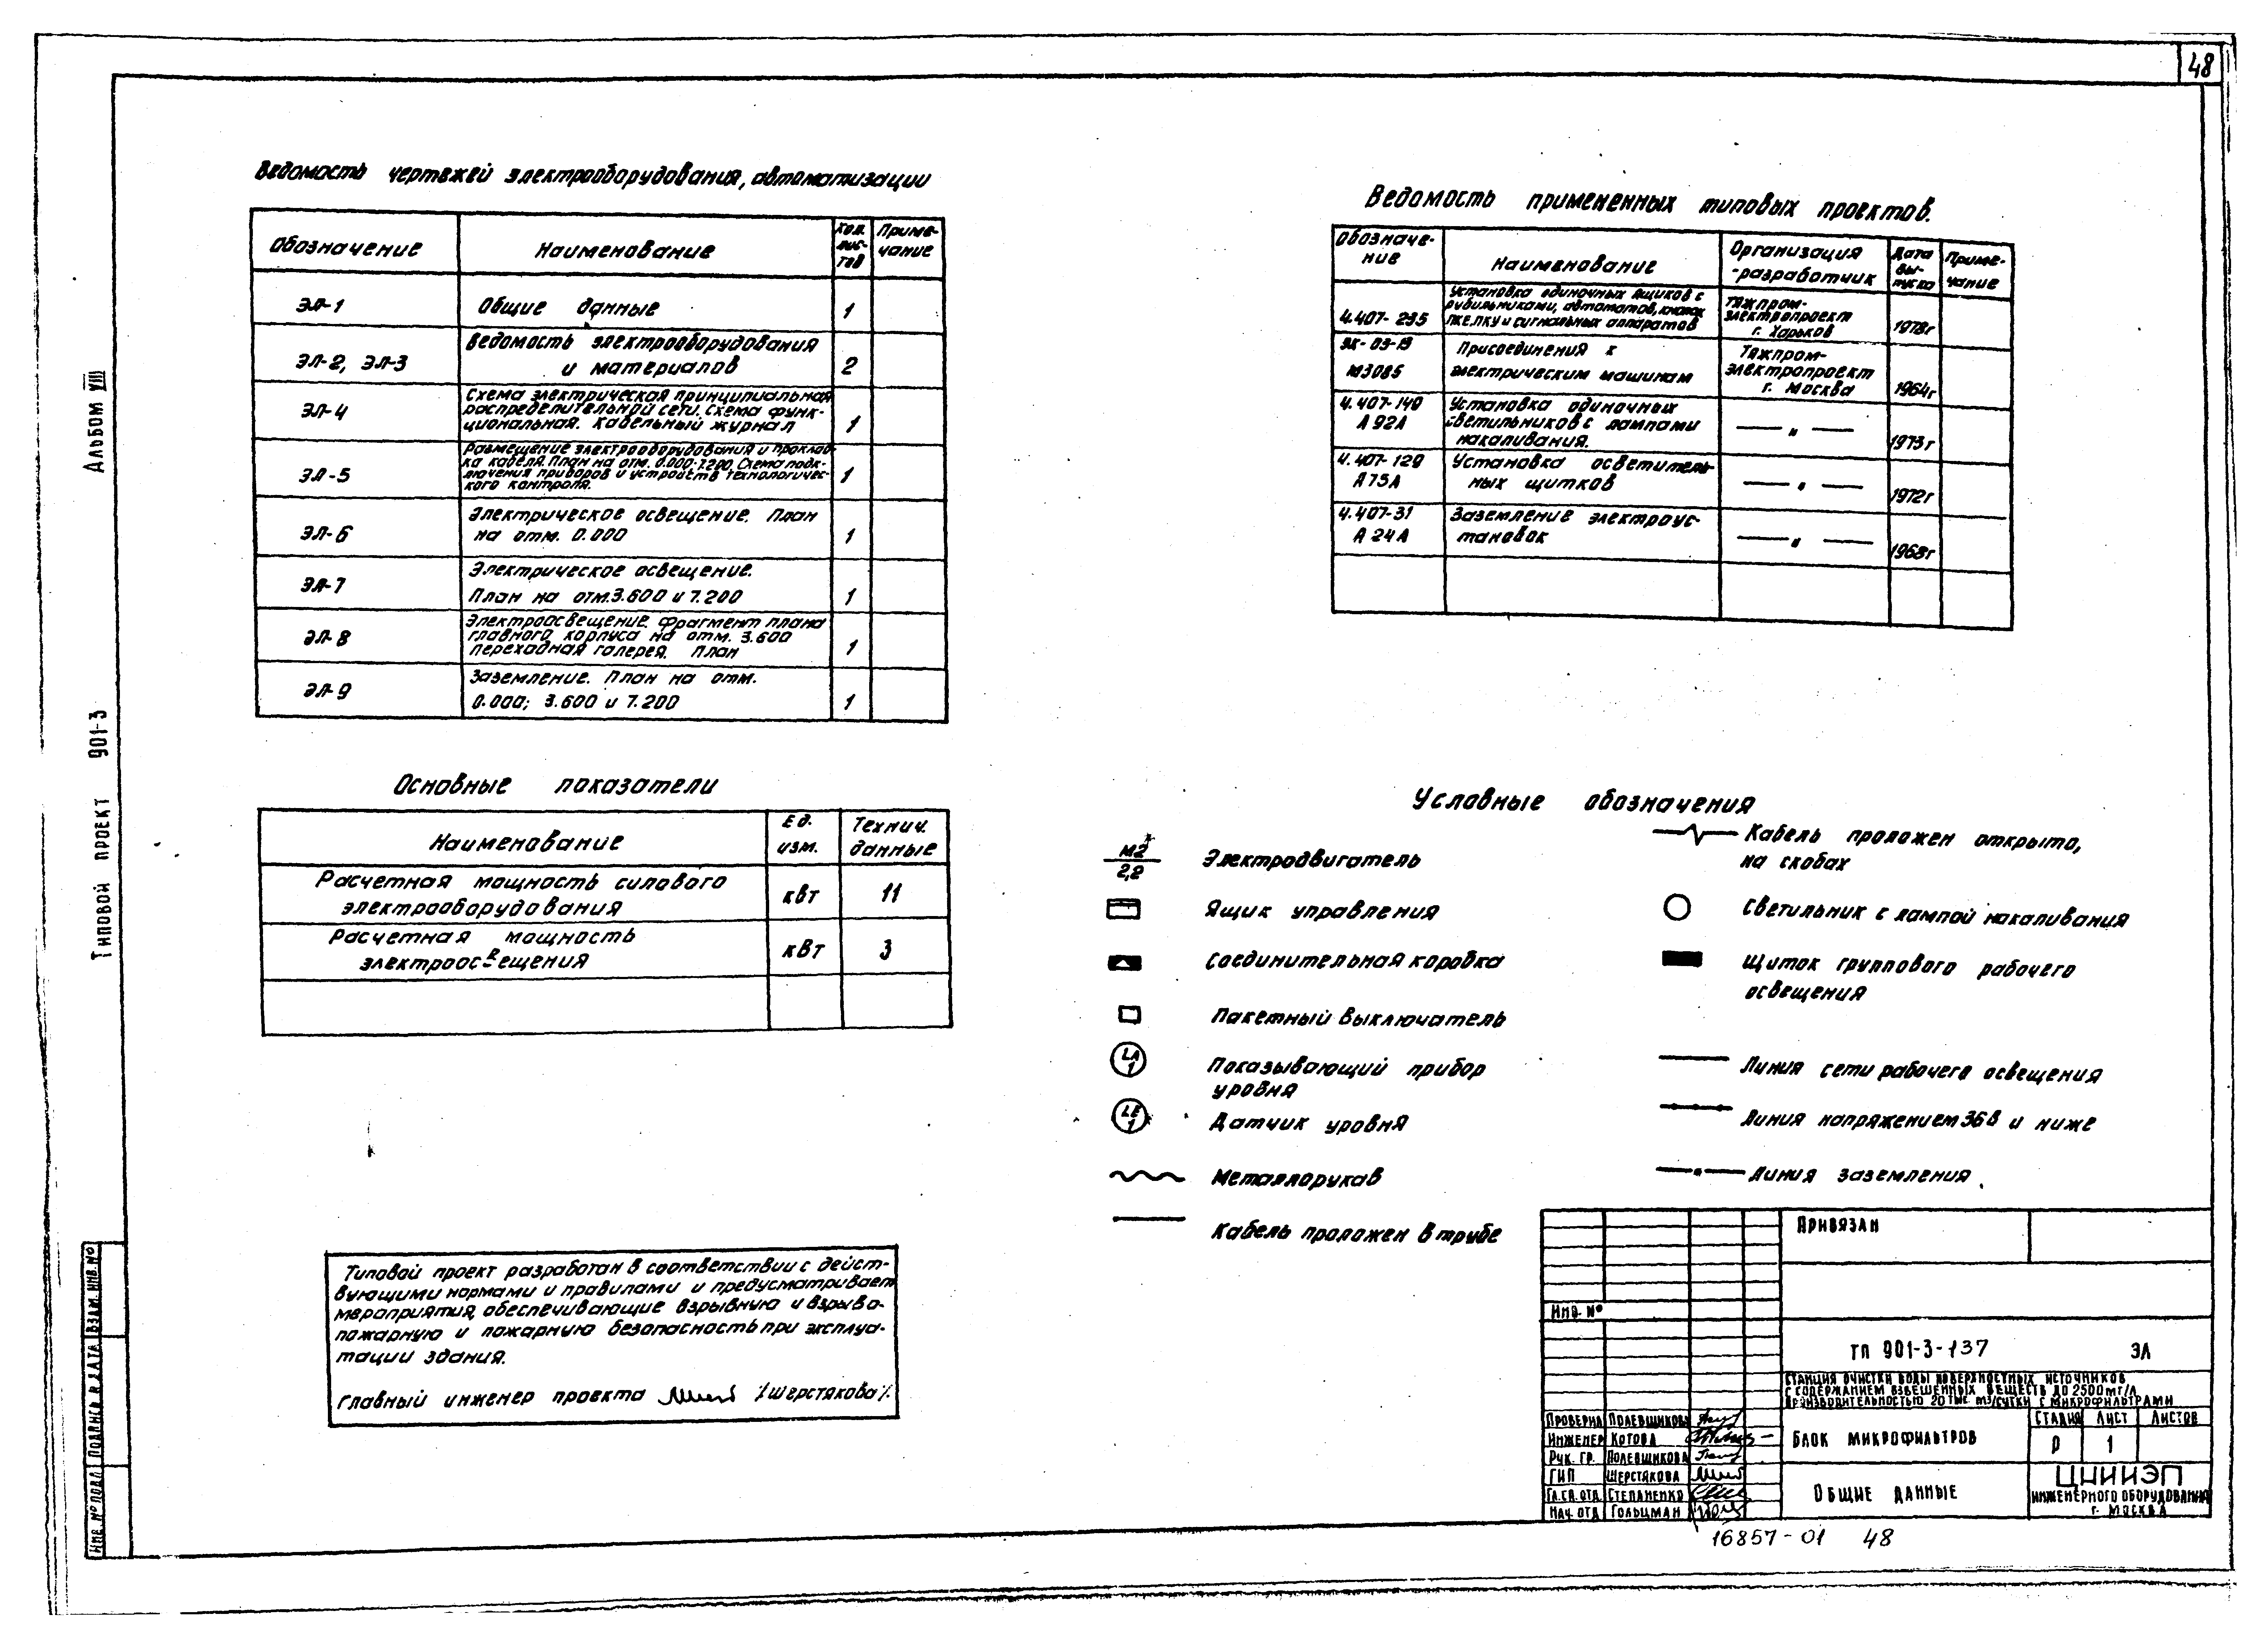 48
Альбом VIII
Типовой проект 901-3
Ведомость чертежей электрооборудования, автоматизации
Обозначение
Наименование
Кол. лис-тов
Приме-чание
ЭЛ-1
Общие данные
1
ЭЛ-2, ЭЛ-3
Ведомость электрооборудования
и материалов
2
ЭЛ-4
Схема электрическая принципиальная
распределительной сети. Схема функ-
циональная. Кабельный журнал
1
ЭЛ-5
Размещение электрооборудования и проклад-
ка кабеля. План на отм. 0.000; 7.200. Схема подк-
лючения приборов и устройств технологичес-
кого контроля.
1
ЭЛ-6
Электрическое освещение. План
на отм. 0.000
1
ЭЛ-7
Электрическое освещение.
План на отм. 3.600 и 7.200
1
ЭЛ-8
Электроосвещение. Фрагмент плана
главного корпуса на отм. 3.600
переходная галерея. План
1
ЭЛ-9
Заземление. План на отм.
0.000; 3.600 и 7.200
1
Ведомость примененных типовых проектов.
Обозначе-
ние
Наименование
Организация
-разработчик
Дата
вы-
пуска
Приме-
чание
4.407-235
Установка одиночных ящиков с
рубильниками, автоматов, кнопок
и сигнальных аппаратов
Тяжпром-
электропроект
г. Харьков
1978г
М3085
Присоединения к
электрическим машинам
Тяжпром-
электропроект
г. Москва
1964г
4.407-149
А92А
Установка одиночных
светильников с лампами
накаливания.
— " —
1973г
4.407-129
А75А
Установка осветитель-
ных щитков
— " —
1972г
4.407-31
А24А
Заземление электроус-
тановок
— " —
1968г
Основные показатели
Наименование
Ед.
изм.
Технич.
данные
Расчетная мощность силового
электрооборудования
кВт
11
Расчетная мощность
электроосвещения
кВт
3
Условные обозначения
М2
2,2
Электродвигатель
Ящик управления
Соединительная коробка
Пакетный выключатель
1
Показывающий прибор
уровня
LE
1
Датчик уровня
Металлорукав
Кабель проложен в трубе
Кабель проложен открыто,
на скобах
Светильник с лампой накаливания
Щиток группового рабочего
освещения
Линия сети рабочего освещения
Линия напряжением 36в и ниже
Линия заземления
Типовой проект разработан в соответствии с дейст-
вующими нормами и правилами и предусматривает
мероприятия, обеспечивающие взрывную и взрыво-
пожарную и пожарную безопасность при эксплуа-
тации здания.
Главный инженер проекта /Шерстякова/.
Инв. № подл.
Подпись и дата
Взам. инв. №
Привязан
Инв. №
ТП 901-3-137
ЭЛ
Станция очистки воды поверхностных источников
с содержанием взвешенных веществ до 2500 мг/л
производительностью 20 тыс. м3/сутки с микрофильтрами
Проверил Полевщикова
Инженер Котова
Рук. гр. Полевщикова
ГИП Шерстякова
Гл.сп.отд. Степаненко
Нач. отд Гольцман
Блок микрофильтров
Стадия
Лист
Листов
Р
1
Общие данные
ЦНИИЭП
инженерного оборудования
г. Москва
16857-01 48